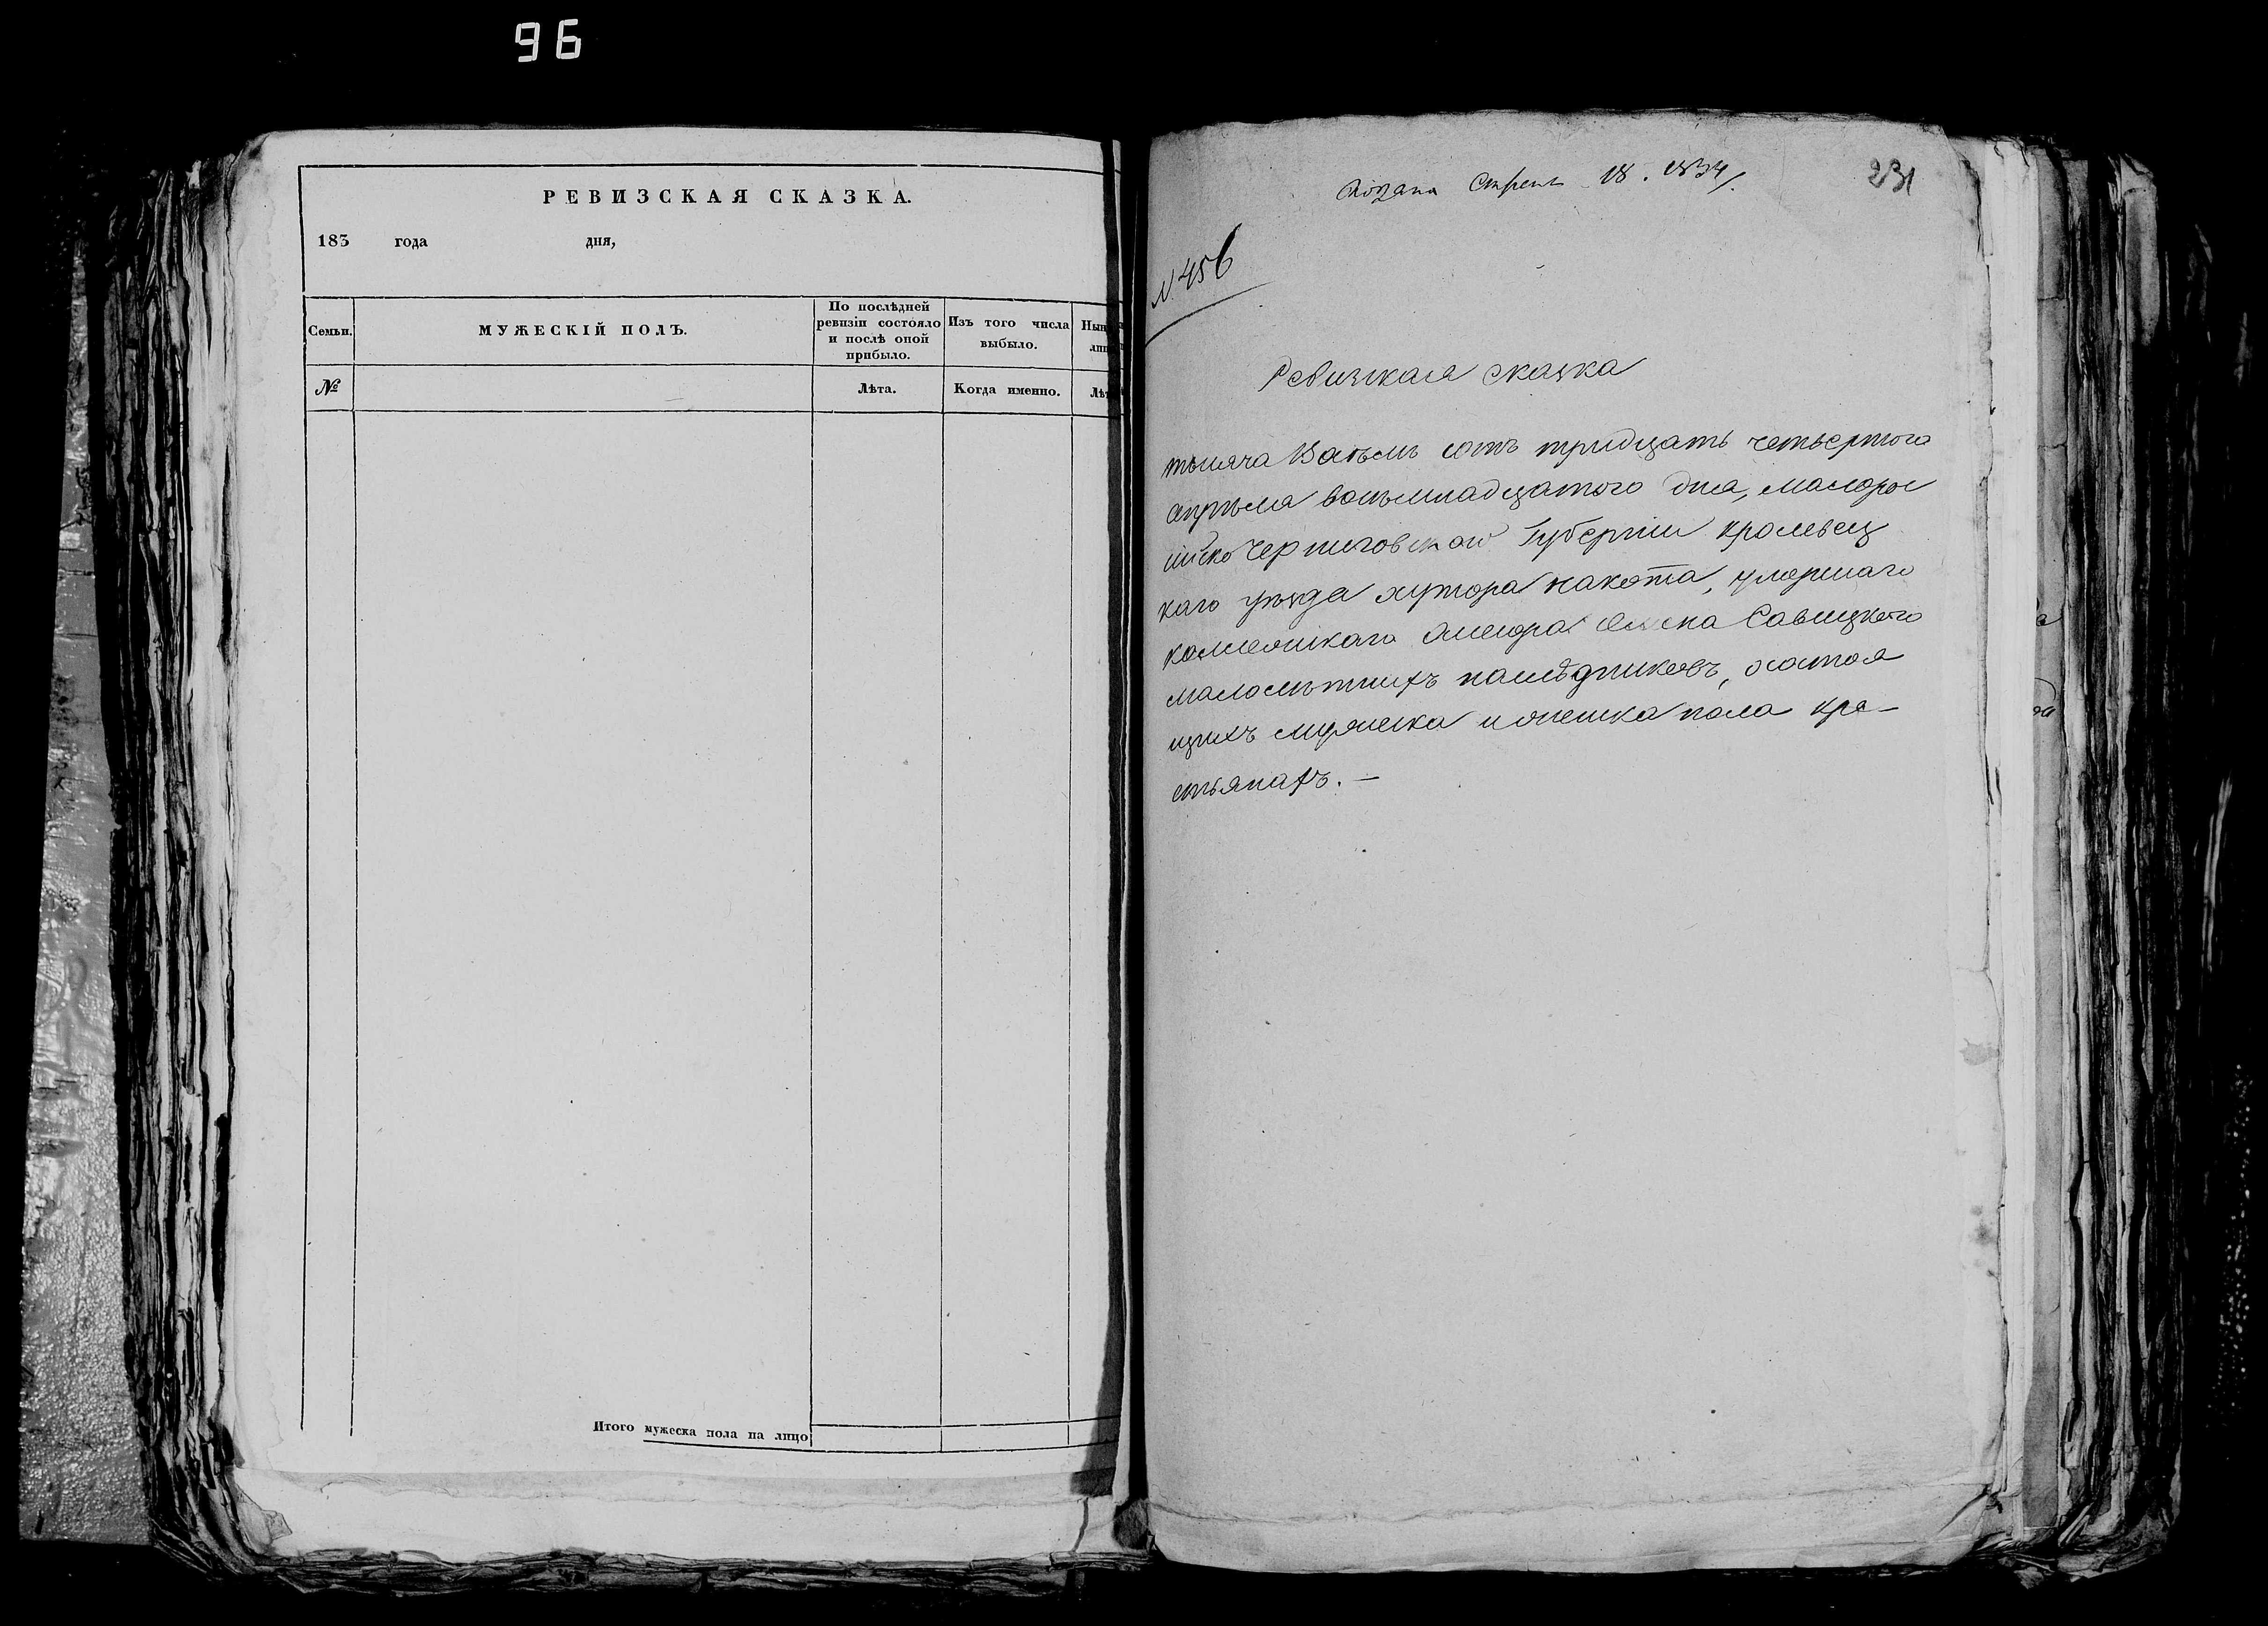 96
РЕВИЗСКАЯ СКАЗКА.
183 года дня,
Семьи.
МУЖЕСКІЙ ПОЛЪ.
По послѣдней
ревизіи состояло
и послѣ оной
прибыло.
Изъ того числа
выбыло.
№
Лѣта.
Когда именно.
Итого мужеска пола на лицо
Подана 18. 1834/.
231
№ 456
Ревизская сказка
тысяча Восемь сотъ тридцать четвертого
апрѣля восьмнадцатого дня, малорос
ійско Черниговской Губерніи кролевец
каго уѣзда хутора накота, умершаго
коллежскаго Асесора Савицкого
малолѣтнихъ наслѣдниковъ, осостоя
щихъ мужеска и женска пола кре-
стьянахъ. —